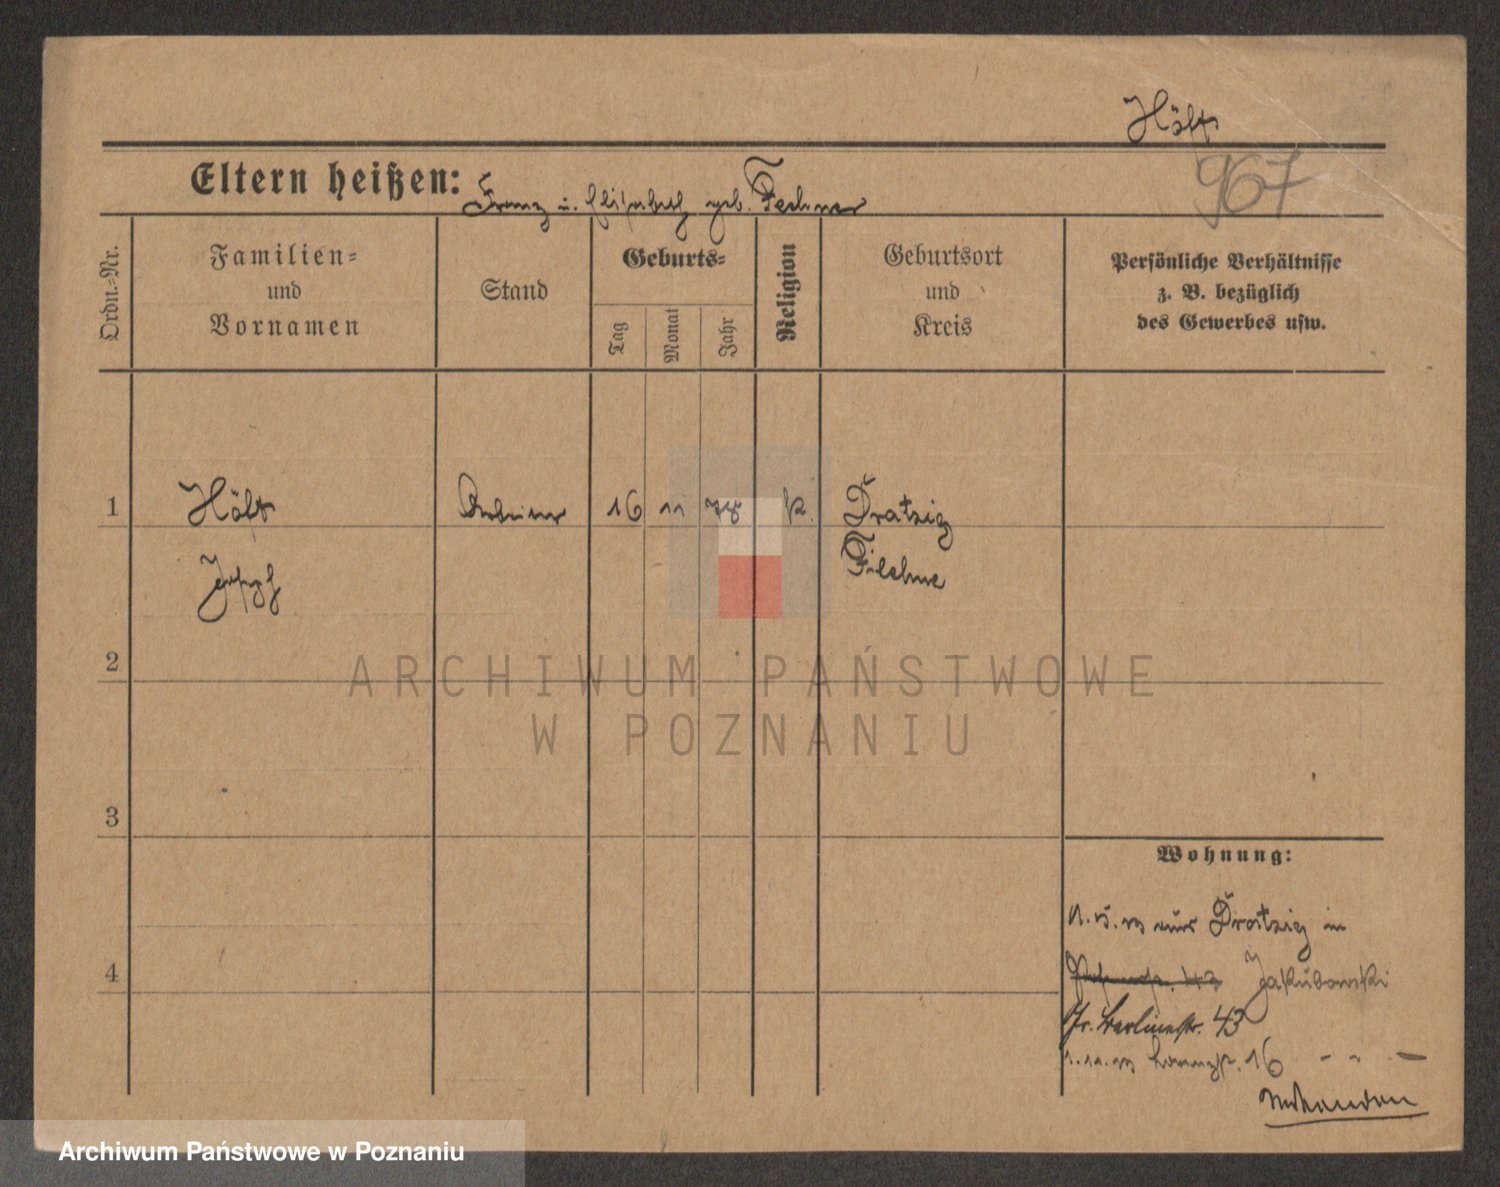 Höft
967
Eltern heißen: Franz u. Elisabeth geb. Fechner
Ordn.-Nr.
Familien-
und
Vornamen
Stand
Geburts-
Tag
Monat
Jahr
Religion
Geburtsort
und
Kreis
Persönliche Verhältnisse
z. B. bezüglich
des Gewerbes usw.
1 Höft Arbeiter 16 11 78 k. Dratzig
Joseph Filehne
2
ARCHIWUM PAŃSTWOWE
W POZNANIU
3
4
Wohnung:
1.5. aus Dratzig in
43 Jakubowski
Gr. Berlinerstr. 43
1.11. 16 - - -
Archiwum Państwowe w Poznaniu